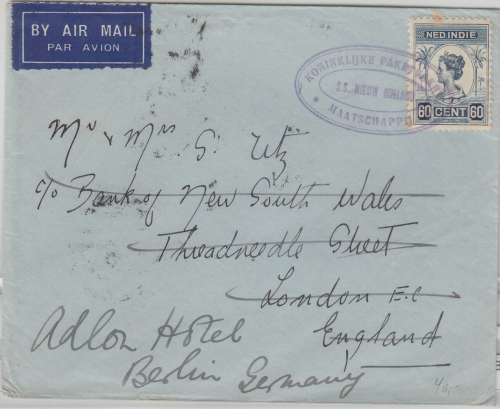 BY AIR MAIL
PAR AVION
NED INDIE
60 CENT 60
KONINKLIJKE
S.S. NIEUW HOLLA
MAATSCHAPP
Mr & Mrs S. Utz
c/o Bank of New South Wales
Threadneedle Street
London E.C
England
Adlon Hotel
Berlin Germany